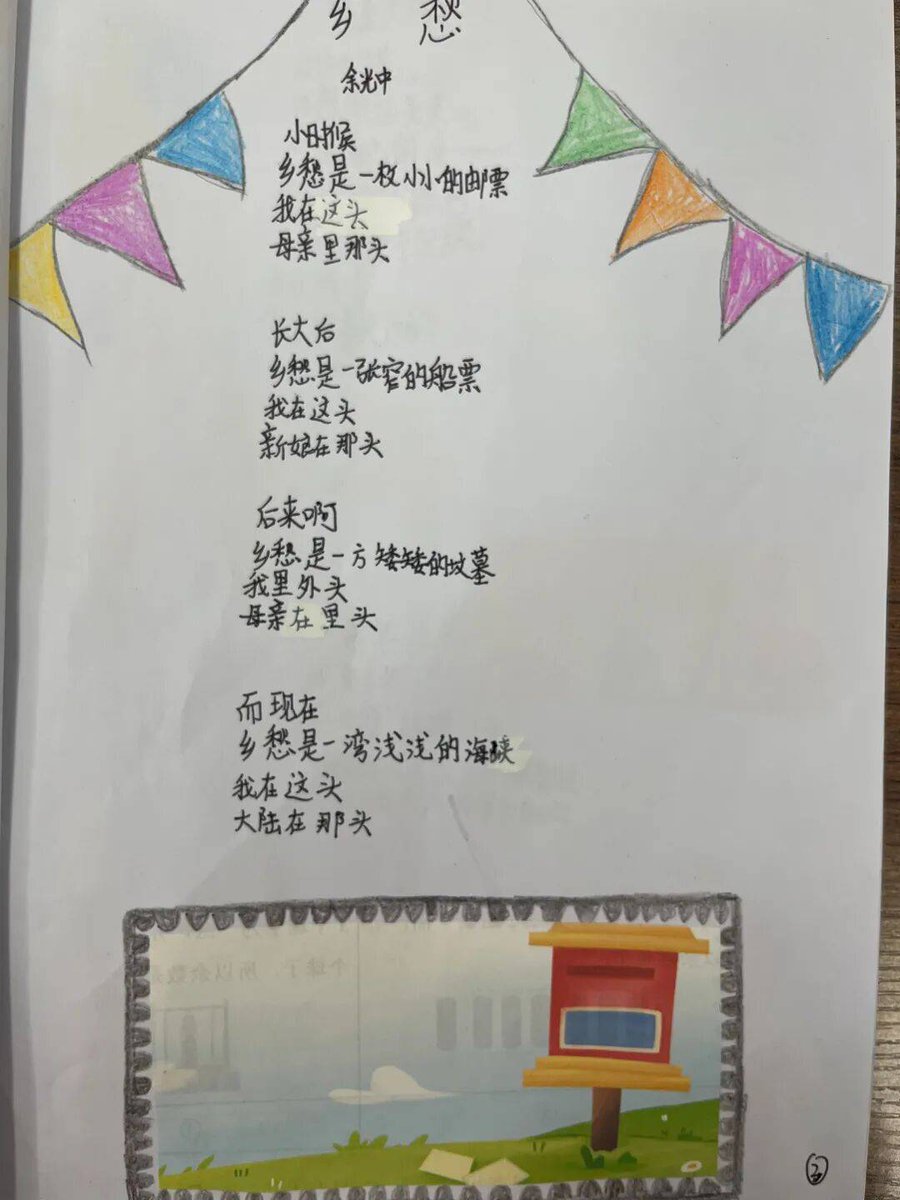 乡 愁
余光中
小时候
乡愁是一枚小小的邮票
我在这头
母亲里那头
长大后
乡愁是一张窄的船票
我在这头
新娘在那头
后来啊
乡愁是一方矮矮的坟墓
我里外头
母亲在里头
而现在
乡愁是一湾浅浅的海峡
我在这头
大陆在那头